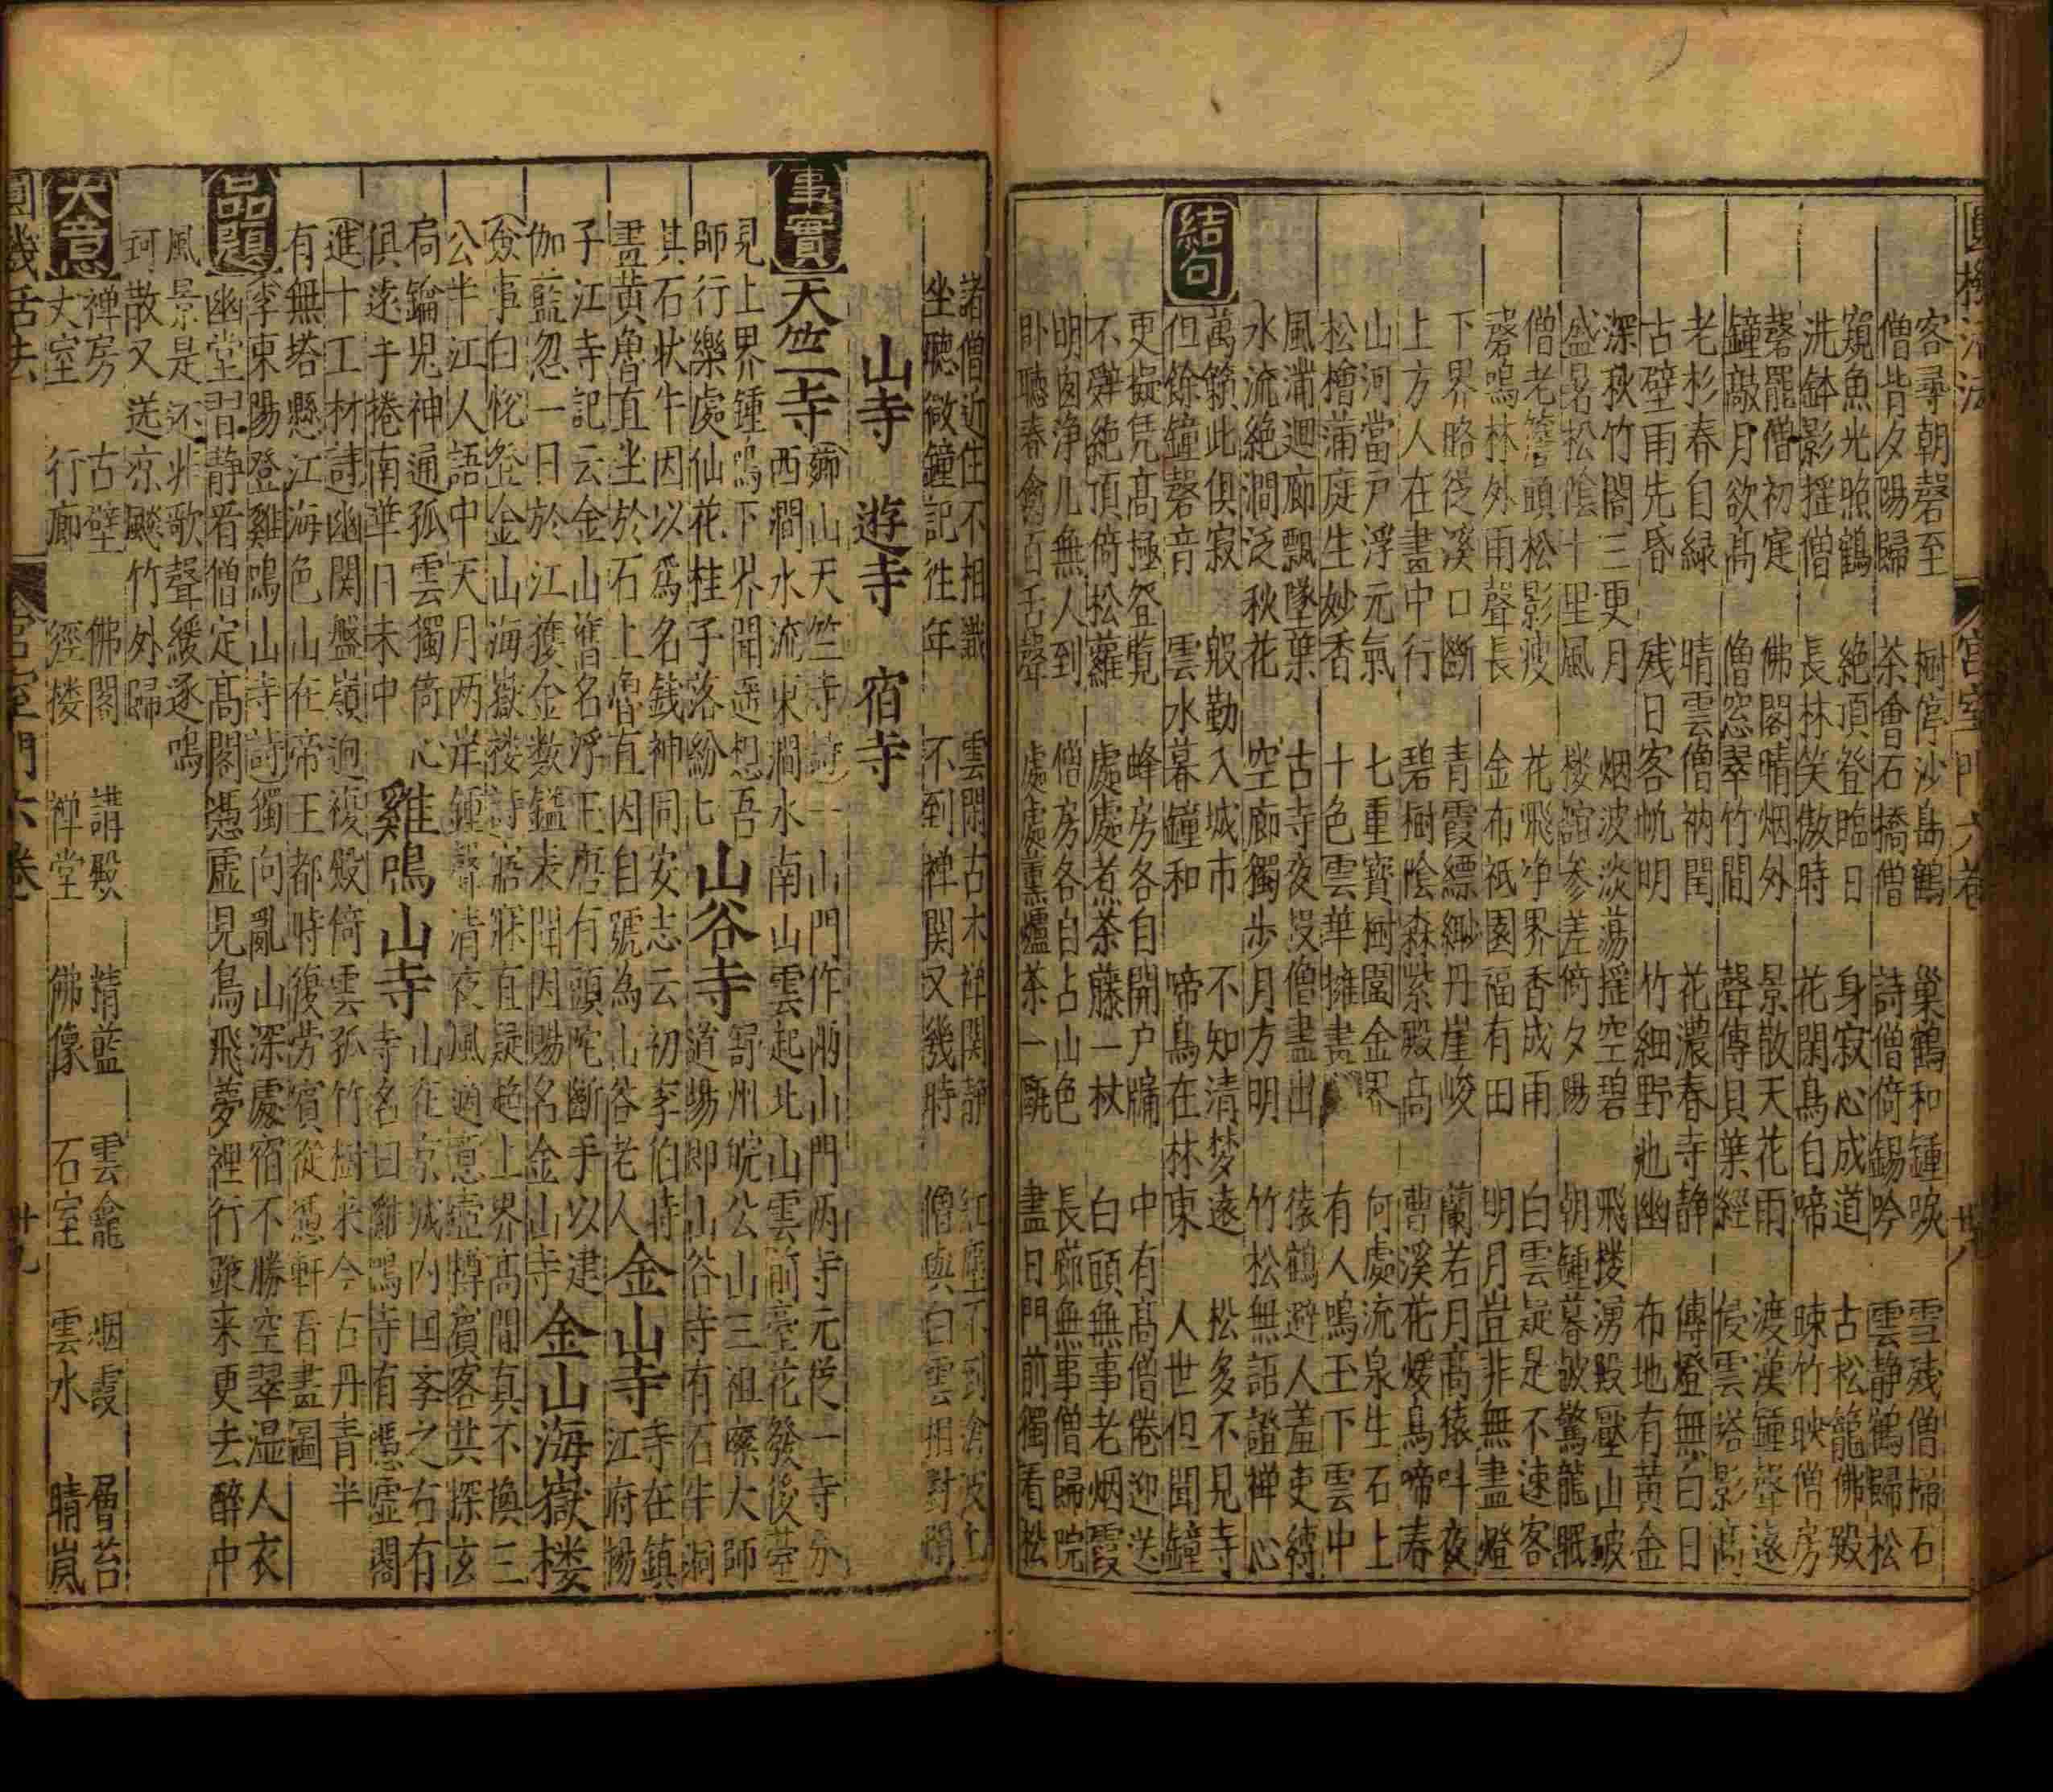 圓機活法 宮室門六卷 廿八
客尋朝磬至 樹停沙島鶴 巢鶴和鍾唳 雪残僧掃石
僧背夕陽歸 茶會石橋僧 詩僧倚錫吟 雲静鶴歸松
窺魚光照鶴 絶頂登臨日 身寂心成道 古松籠佛殿
洗鉢影揺僧 長林笑傲時 花閑鳥自啼 暕竹映僧房
磬罷僧初定 佛閣晴烟外 景散天花雨 渡漢鍾聲遠
鐘敲月欲高 僧窓翠竹間 聲傳貝葉經 侵雲塔影高
老杉春自緑 晴雲僧衲閏 花濃春寺静 傳燈無白日
古壁雨先昏 残日客帆明 竹細野池幽 布地有黄金
深秋竹閣三更月 烟波淡蕩揺空碧 飛楼湧殿壓山破
盛暑松陰十里風 楼舘参差倚夕陽 朝鍾暮皷驚龍眠
僧老簷頭松影瘦 花飛浄界香成雨 白雲疑是不速客
磬鳴林外雨聲長 金布祇園福有田 明月豈非無盡燈
下界略從溪口斷 青霞縹緲丹崖峻 蘭若月高猿呌夜
上方人在畫中行 碧樹陰森紫殿高 曹溪花煖鳥啼春
山河當戸浮元氣 七重寶樹圍金界 何處流泉生石上
松檜蒲庭生妙香 十色雲華擁畫 有人鳴玉下雲中
風滿迴廊飄墜葉 古寺夜没僧盡出 猿鶴避人羞吏縛
水流絶澗泛秋花 空廊獨步月方明 竹松無語證禅心
結句
萬籟此俱寂 殷勤入城市 不知清梦遠 松多不見寺
但餘鐘磬音 雲水暮鐘和 啼鳥在林東 人世但聞鐘
更擬凭高極登覧 峰房各自開户牖 中有高僧倦迎送
不辤絶頂倚松蘿 處處煮茶藤一杖 白頭無事老烟霞
明囱浄几無人到 僧房各自占山色 長廊無事僧歸院
卧聽春禽百舌聲 處處薫爐茶一甌 盡日門前獨看松
諸僧近住不相識 雲閑古木禅関静 紅塵不到滄波上
坐聽微鐘記往年 不到禅関又幾時 僧與白雲相對閑
山寺 遊寺 宿寺
事實 天竺寺 山天竺寺詩一山門作兩山門两寺元從一寺分
西澗水流東澗水南山雲起北山雲前臺花發後臺
見上界鍾鳴下界聞遥想吾 山谷寺 寄州皖公山三祖璨大師
師行樂處仙花桂子落紛七 道場即山谷寺有石牛洞
其石状牛因以爲名銭神同安志云初李伯時
畫黄魯直坐於石上魯直因自號為山谷老人 金山寺 寺在鎮
江府楊
子江寺記云金山舊名浮玉唐有頭陀斷手以建
伽藍忽一日於江獲金数鎰表聞因賜名金山寺 金山海嶽楼
僉事白悅登金山海嶽楼詩寤寐直疑趋上界高間真不換三
公半江人語中天月两岸鍾聲清夜風適意壺樽賓客共探玄
扃鑰鬼神通孤雲獨倚心 雞鳴山寺 山在京城内回李之右有
俱遠手捲南華日未中 寺名曰雞鳴寺有憑虚閣
進十工材詩幽関盤嶺迥複殿倚雲孤竹樹来今古丹青半
有無塔懸江海色山在帝王都時復労賓從憑軒看畫圖
品題 李東陽登雞鳴山寺詩獨向亂山深處宿不勝空翠湿人衣
幽堂習静看僧定高閣憑虚見鳥飛夢裡行踪来更去醉中
風景是还非歌聲緩逐鳴
珂散又送凉颷竹外歸
大意 禅房 古壁 佛閣 講殿 精藍 雲龕 烟霞 層苔
丈室 行廊 經楼 禅堂 佛像 石室 雲水 晴嵐
圓機活法 宮室門六卷 廿九